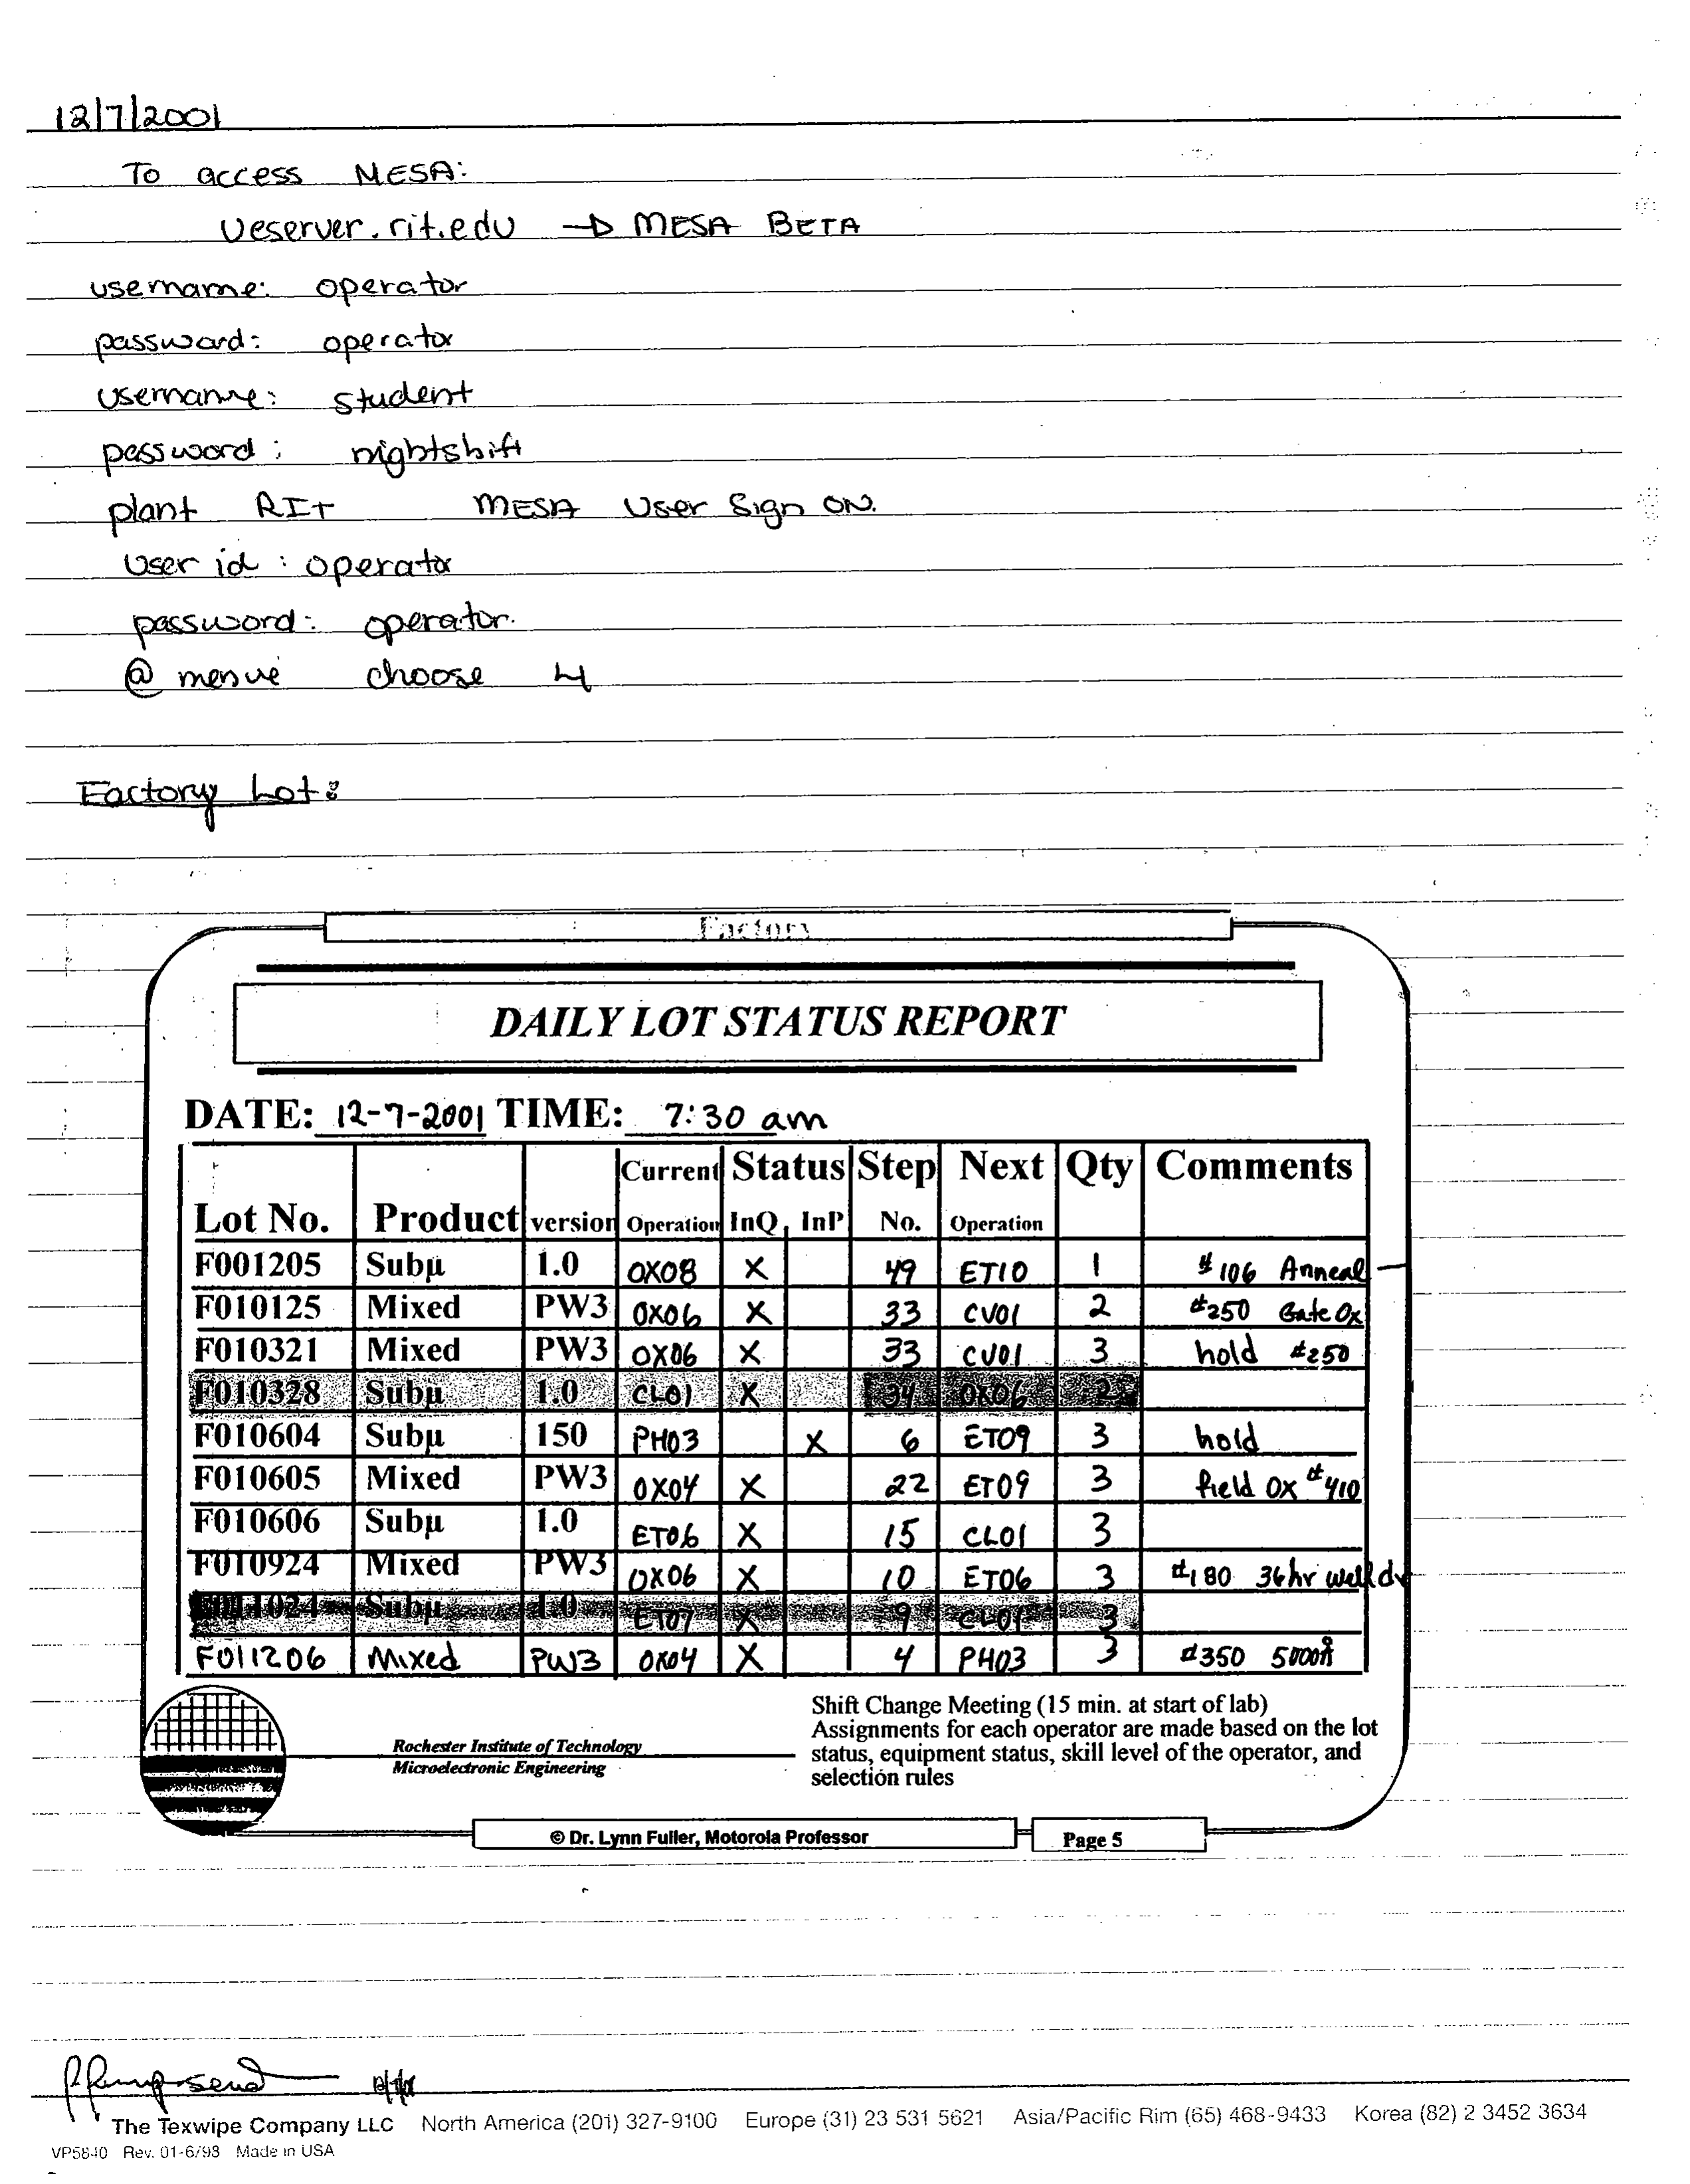 12/7/2001
To access MESA:
Ueserver.rit.edu → MESA BETA
username: operator
password: operator
username: student
password: nightshift
plant RIT MESA User Sign ON.
User id: operator
password: operator.
@ menue choose 4
Factory Lot:
Factory
DAILY LOT STATUS REPORT
DATE: 12-7-2001 TIME: 7:30 am
Lot No. Product version Current Operation Status InQ InP Step No. Next Operation Qty Comments
F001205 Subµ 1.0 OX08 X 49 ET10 1 #106 Anneal
F010125 Mixed PW3 OX06 X 33 CV01 2 #250 Gate Ox
F010321 Mixed PW3 OX06 X 33 CV01 3 hold #250
F010328 Subµ 1.0 CL01 X 34 OX06
F010604 Subµ 150 PH03 X 6 ET09 3 hold
F010605 Mixed PW3 OX04 X 22 ET09 3 field OX #410
F010606 Subµ 1.0 ET06 X 15 CL01 3
F010924 Mixed PW3 OX06 X 10 ET06 3 #180 36hr well dr
Subµ 1.0 ET07 X 9 CL01 3
F011206 Mixed PW3 OX04 X 4 PH03 3 #350 5000Å
Shift Change Meeting (15 min. at start of lab)
Assignments for each operator are made based on the lot
status, equipment status, skill level of the operator, and
selection rules
Rochester Institute of Technology
Microelectronic Engineering
© Dr. Lynn Fuller, Motorola Professor Page 5
The Texwipe Company LLC North America (201) 327-9100 Europe (31) 23 531 5621 Asia/Pacific Rim (65) 468-9433 Korea (82) 2 3452 3634
VP5840 Rev. 01-6/98 Made in USA